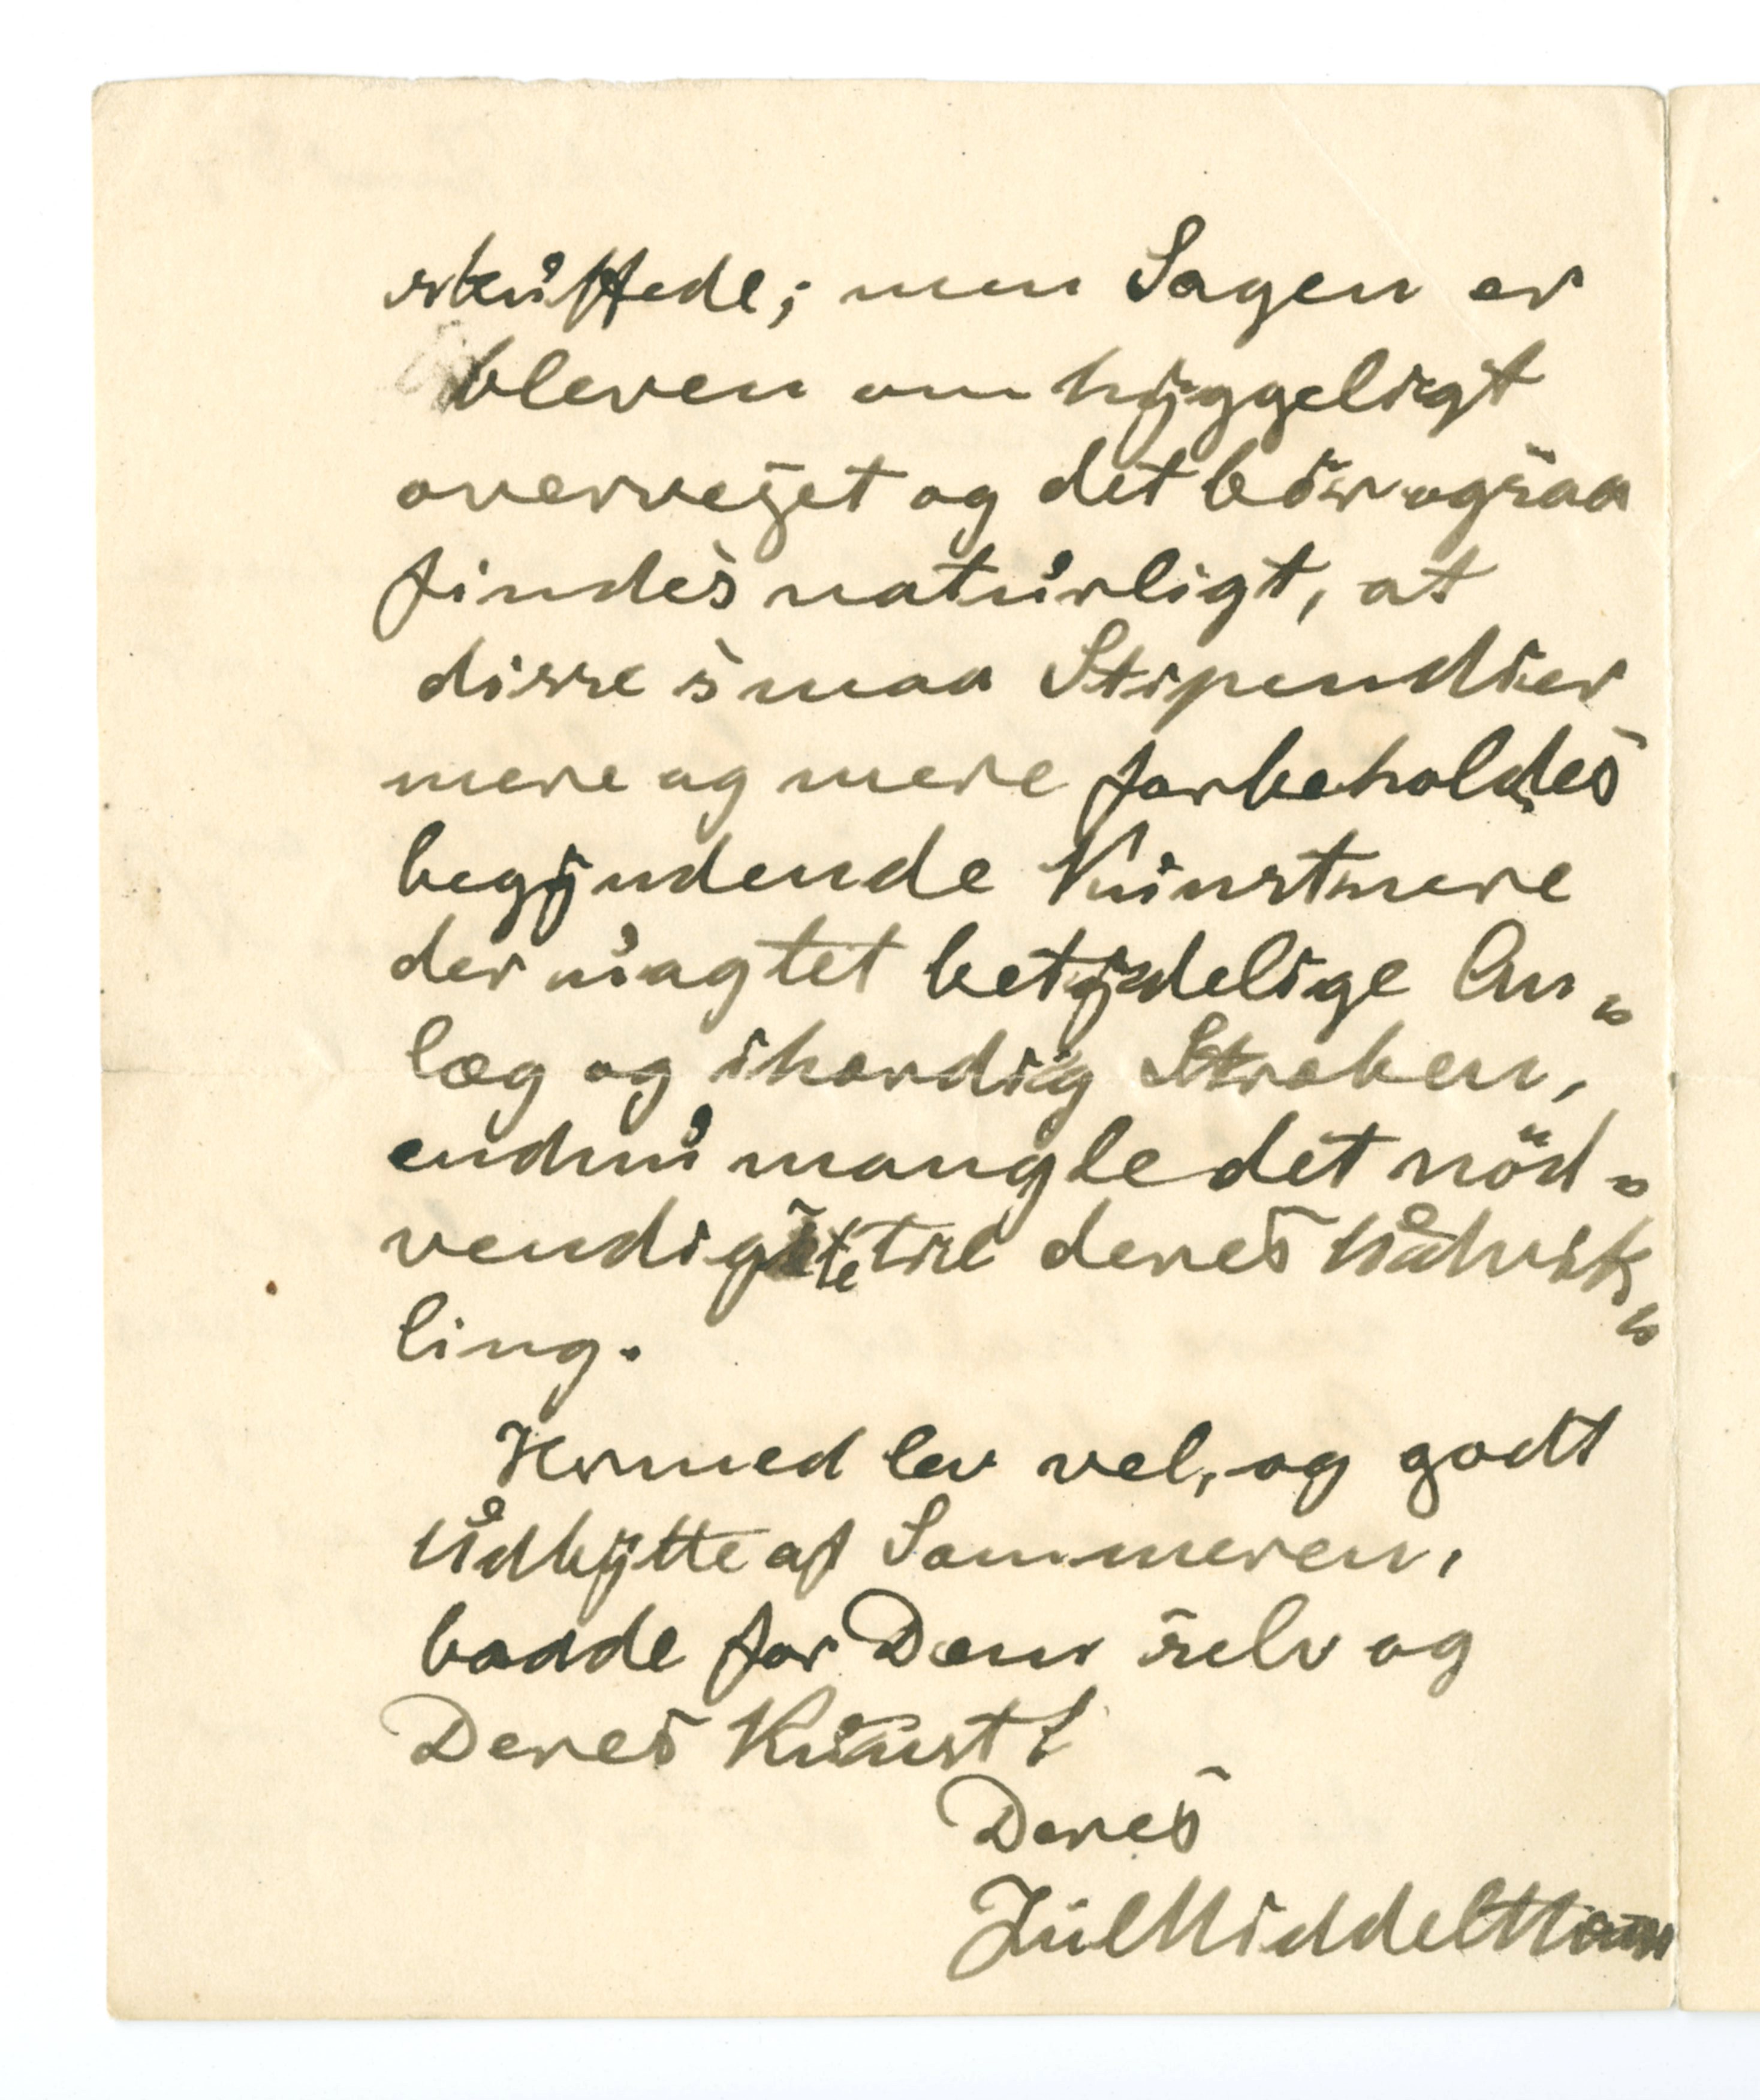 skuffede; men Sagen er
bleven omhyggeligt
overvejet og det bör ogsaa
findes naturligt, at
disse smaa Stipendier
mere og mere forbeholdes
begyndende Kunstnere
der uagtet betydelige An„
læg og ihærdig Stræben,
endnu mangle det nöd„
vendigste til deres Udvik„
ling.
Hermed lev vel, og godt
Udbytte af Sommeren,
baade for Dem selv og
Deres Kunst!
Deres
Jul Middelthun